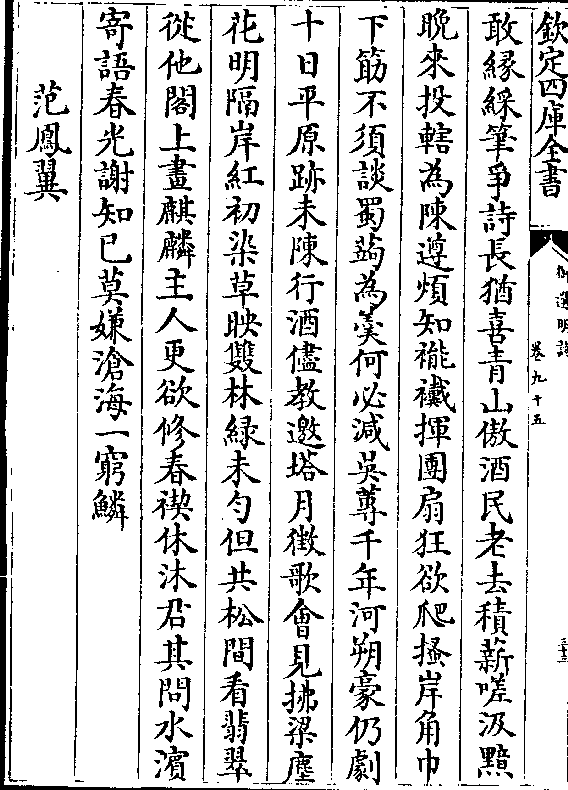 欽定四庫全書
御選明詩
卷九十五
三十三
敢緣綵筆爭詩長猶喜青山傲酒民老去積薪嗟汲黯
晚來投轄為陳遵煩知褦襶揮團扇狂欲爬搔岸角巾
下筯不須談蜀蒟為羮何必減吳蓴千年河朔豪仍劇
十日平原跡未陳行酒儘教邀塔月徴歌會見拂梁塵
花明隔岸紅初染草映雙林緑未勻但共松間看翡翠
從他閣上畫麒麟主人更欲修春禊休沐君其問水濱
寄語春光謝知已莫嫌滄海一窮鱗
范鳳翼